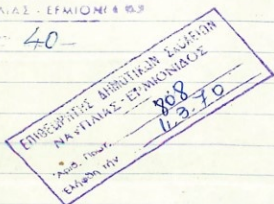 ΛΙΑΣ - ΕΡΜΙΟΝΙΔΟΣ
40-
ΕΠΙΘΕΩΡΗΤΗΣ ΔΗΜΟΤΙΚΩΝ ΣΧΟΛΕΙΩΝ
ΝΑΥΠΛΙΑΣ - ΕΡΜΙΟΝΙΔΟΣ
Αριθ. Πρωτ. 808
Ελήφθη τήν 11.3.70